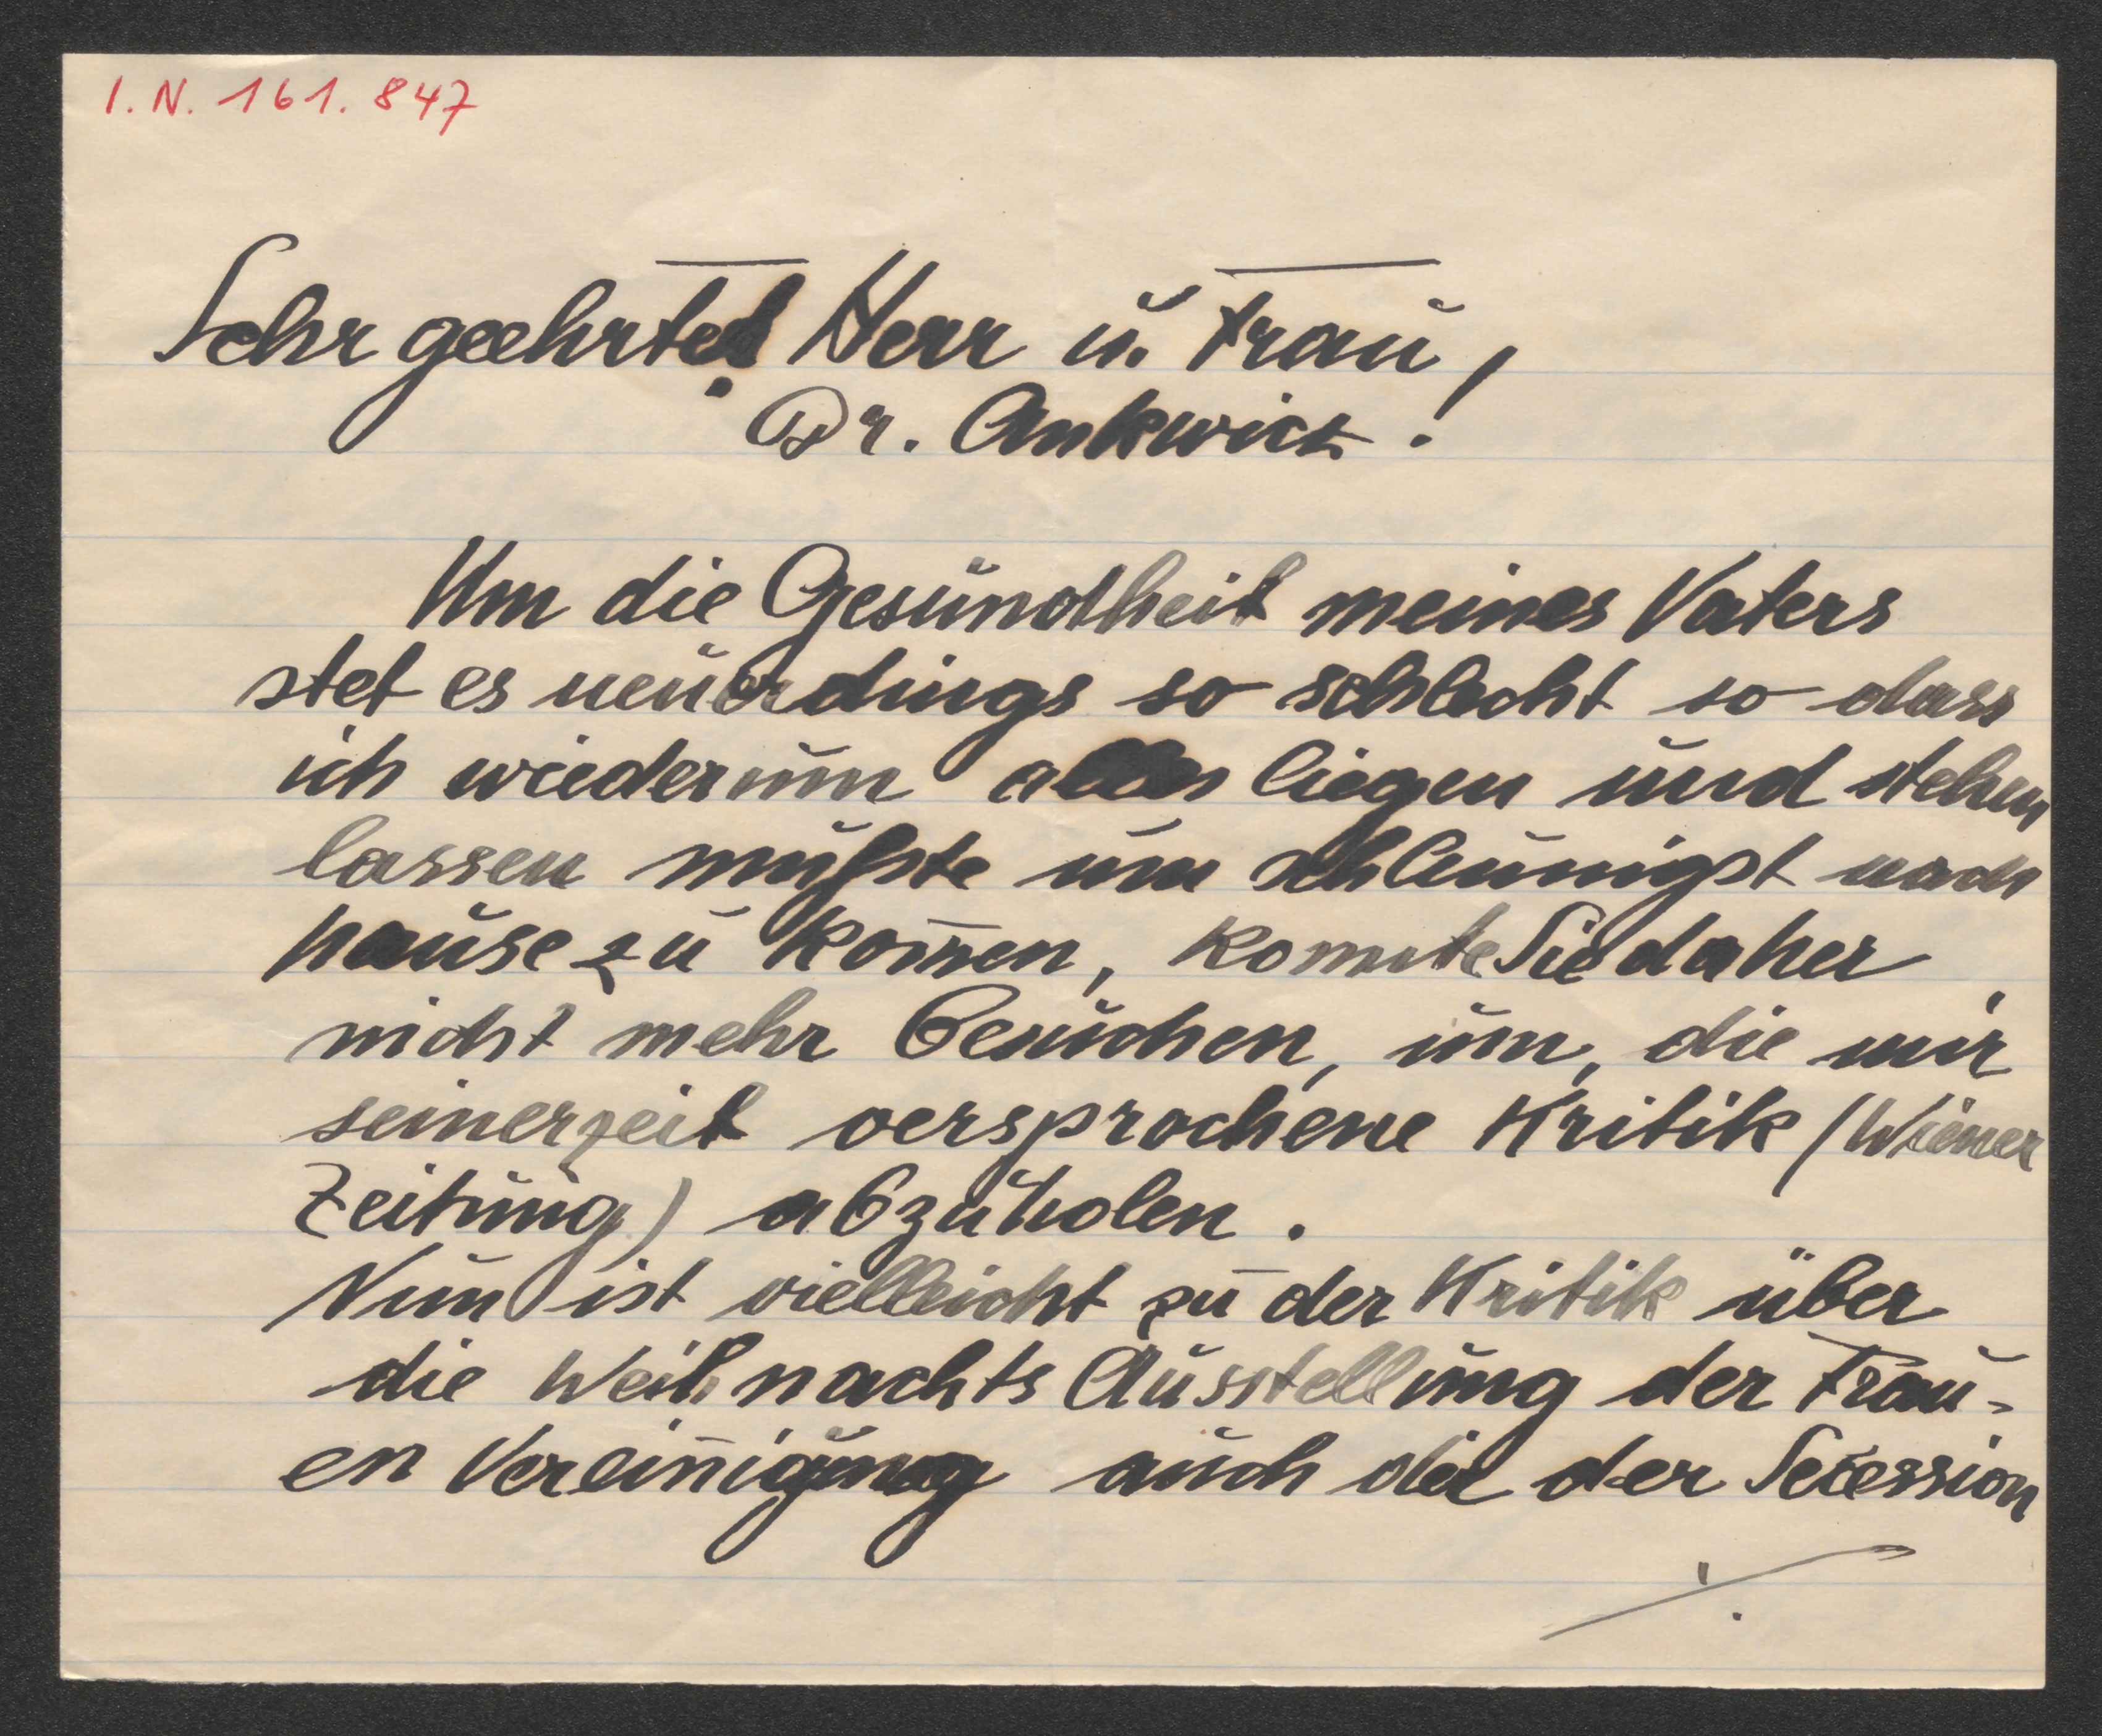 I.N. 161.847
Sehr geehrter Herr u. Frau,
Dr. Ankwicz!
Um die Gesundheit meines Vaters
stet es neuerdings so schlecht so dass
ich wiederum alles liegen und stehen
lassen mußte um schleunigst nach
hause zu kom̄en, konnte Sie daher
nicht mehr besuchen, um, die mir
seinerzeit versprochene Kritik (Wiener
Zeitung) abzuholen.
Nun ist vielleicht zu der Kritik über
die Weihnachts Ausstellung der Frau-
en Vereinigung auch die der Secession
./.